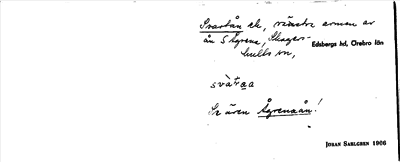 Svartån ek, vänstra armen av
ån S Ågrena, Skagers-
hults sn,
Edsbergs hd, Örebro län
svàtaa
Se även Ågrenaån!
JOHAN SAHLGREN 1906